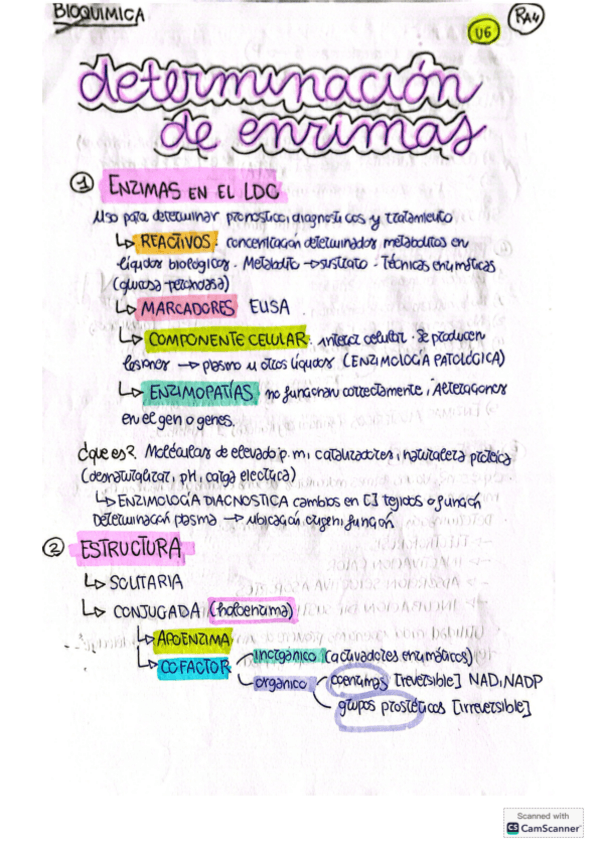 BIOQUIMICA
U6
RA4
determinación
de enzimas
① ENZIMAS EN EL LDC
Uso para determinar pronostico, diagnosticos y tratamiento
↳ REACTIVOS: concentración determinados metabolitos en
líquidos biologicos. Metabolito → sustrato - Técnicas enzimáticas
(glucosa peroxidasa)
↳ MARCADORES ELISA.
↳ COMPONENTE CELULAR: interior celular. Se producen
lesiones → plasma u otros líquidos (ENZIMOLOGÍA PATOLÓGICA)
↳ ENZIMOPATÍAS no funcionan correctamente, Alteraciones
en el gen o genes.
¿Que es? Moléculas de elevado p.m, catalizadores, naturaleza proteica
(desnaturalizar, pH, carga electrica)
↳ ENZIMOLOGÍA DIAGNOSTICA cambios en [] tejidos o función
Determinación plasma → ubicación, origen, función
② ESTRUCTURA
↳ SOLITARIA
↳ CONJUGADA (holoenzima)
↳ APOENZIMA
↳ COFACTOR
inorgánico (activadores enzimáticos)
orgánico
coenzimas [reversible] NAD, NADP
grupos prostéticos [irreversible]
Scanned with
CS CamScanner